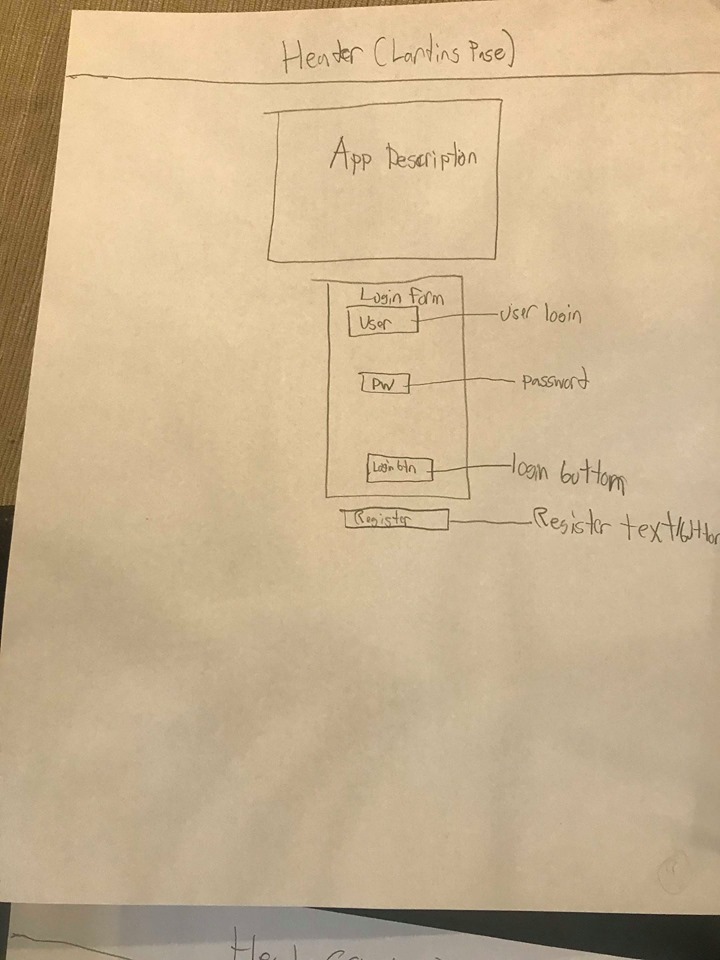 Header (Landing Page)
App Description
Login Form
User
User login
PW
password
Login btn
login buttom
Register
Register text/button